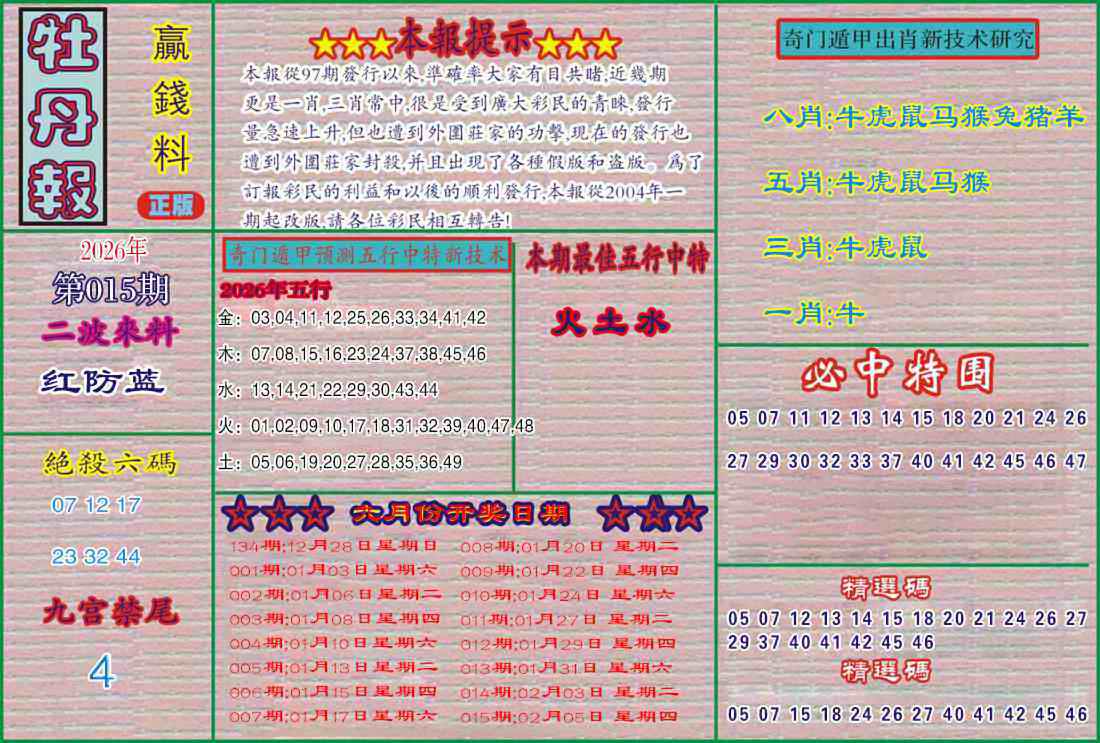 牡丹報
贏錢料
正版
★★★本報提示★★★
本報從97期發行以來,準確率大家有目共睹,近幾期
更是一肖,三肖常中,很是受到廣大彩民的青睞,發行
量急速上升,但也遭到外圍莊家的功擊,現在的發行也
遭到外圍莊家封殺,并且出現了各種假版和盗版。爲了
訂報彩民的利益和以後的順利發行,本報從2004年一
期起改版,請各位彩民相互轉告!
奇门遁甲出肖新技术研究
八肖:牛虎鼠马猴兔猪羊
五肖:牛虎鼠马猴
三肖:牛虎鼠
一肖:牛
2026年
第015期
二波來料
红防蓝
奇门遁甲预测五行中特新技术
2026年五行
金：03,04,11,12,25,26,33,34,41,42
木：07,08,15,16,23,24,37,38,45,46
水：13,14,21,22,29,30,43,44
火：01,02,09,10,17,18,31,32,39,40,47,48
土：05,06,19,20,27,28,35,36,49
本期最佳五行中特
火土水
必中特围
05 07 11 12 13 14 15 18 20 21 24 26
27 29 30 32 33 37 40 41 42 45 46 47
絕殺六碼
07 12 17
23 32 44
九宫禁尾
4
★★★ 六月份开奖日期 ★★★
134期;12月28日星期日 008期;01月20日 星期二
001期;01月03日星期六 009期;01月22日 星期四
002期;01月06日星期二 010期;01月24日 星期六
003期;01月08日星期四 011期;01月27日 星期二
004期;01月10日星期六 012期;01月29日 星期四
005期;01月13日星期二 013期;01月31日 星期六
006期;01月15日星期四 014期;02月03日 星期二
007期;01月17日星期六 015期;02月05日 星期四
精選碼
05 07 12 13 14 15 18 20 21 24 26 27
29 37 40 41 42 45 46
精選碼
05 07 15 18 24 26 27 40 41 42 45 46